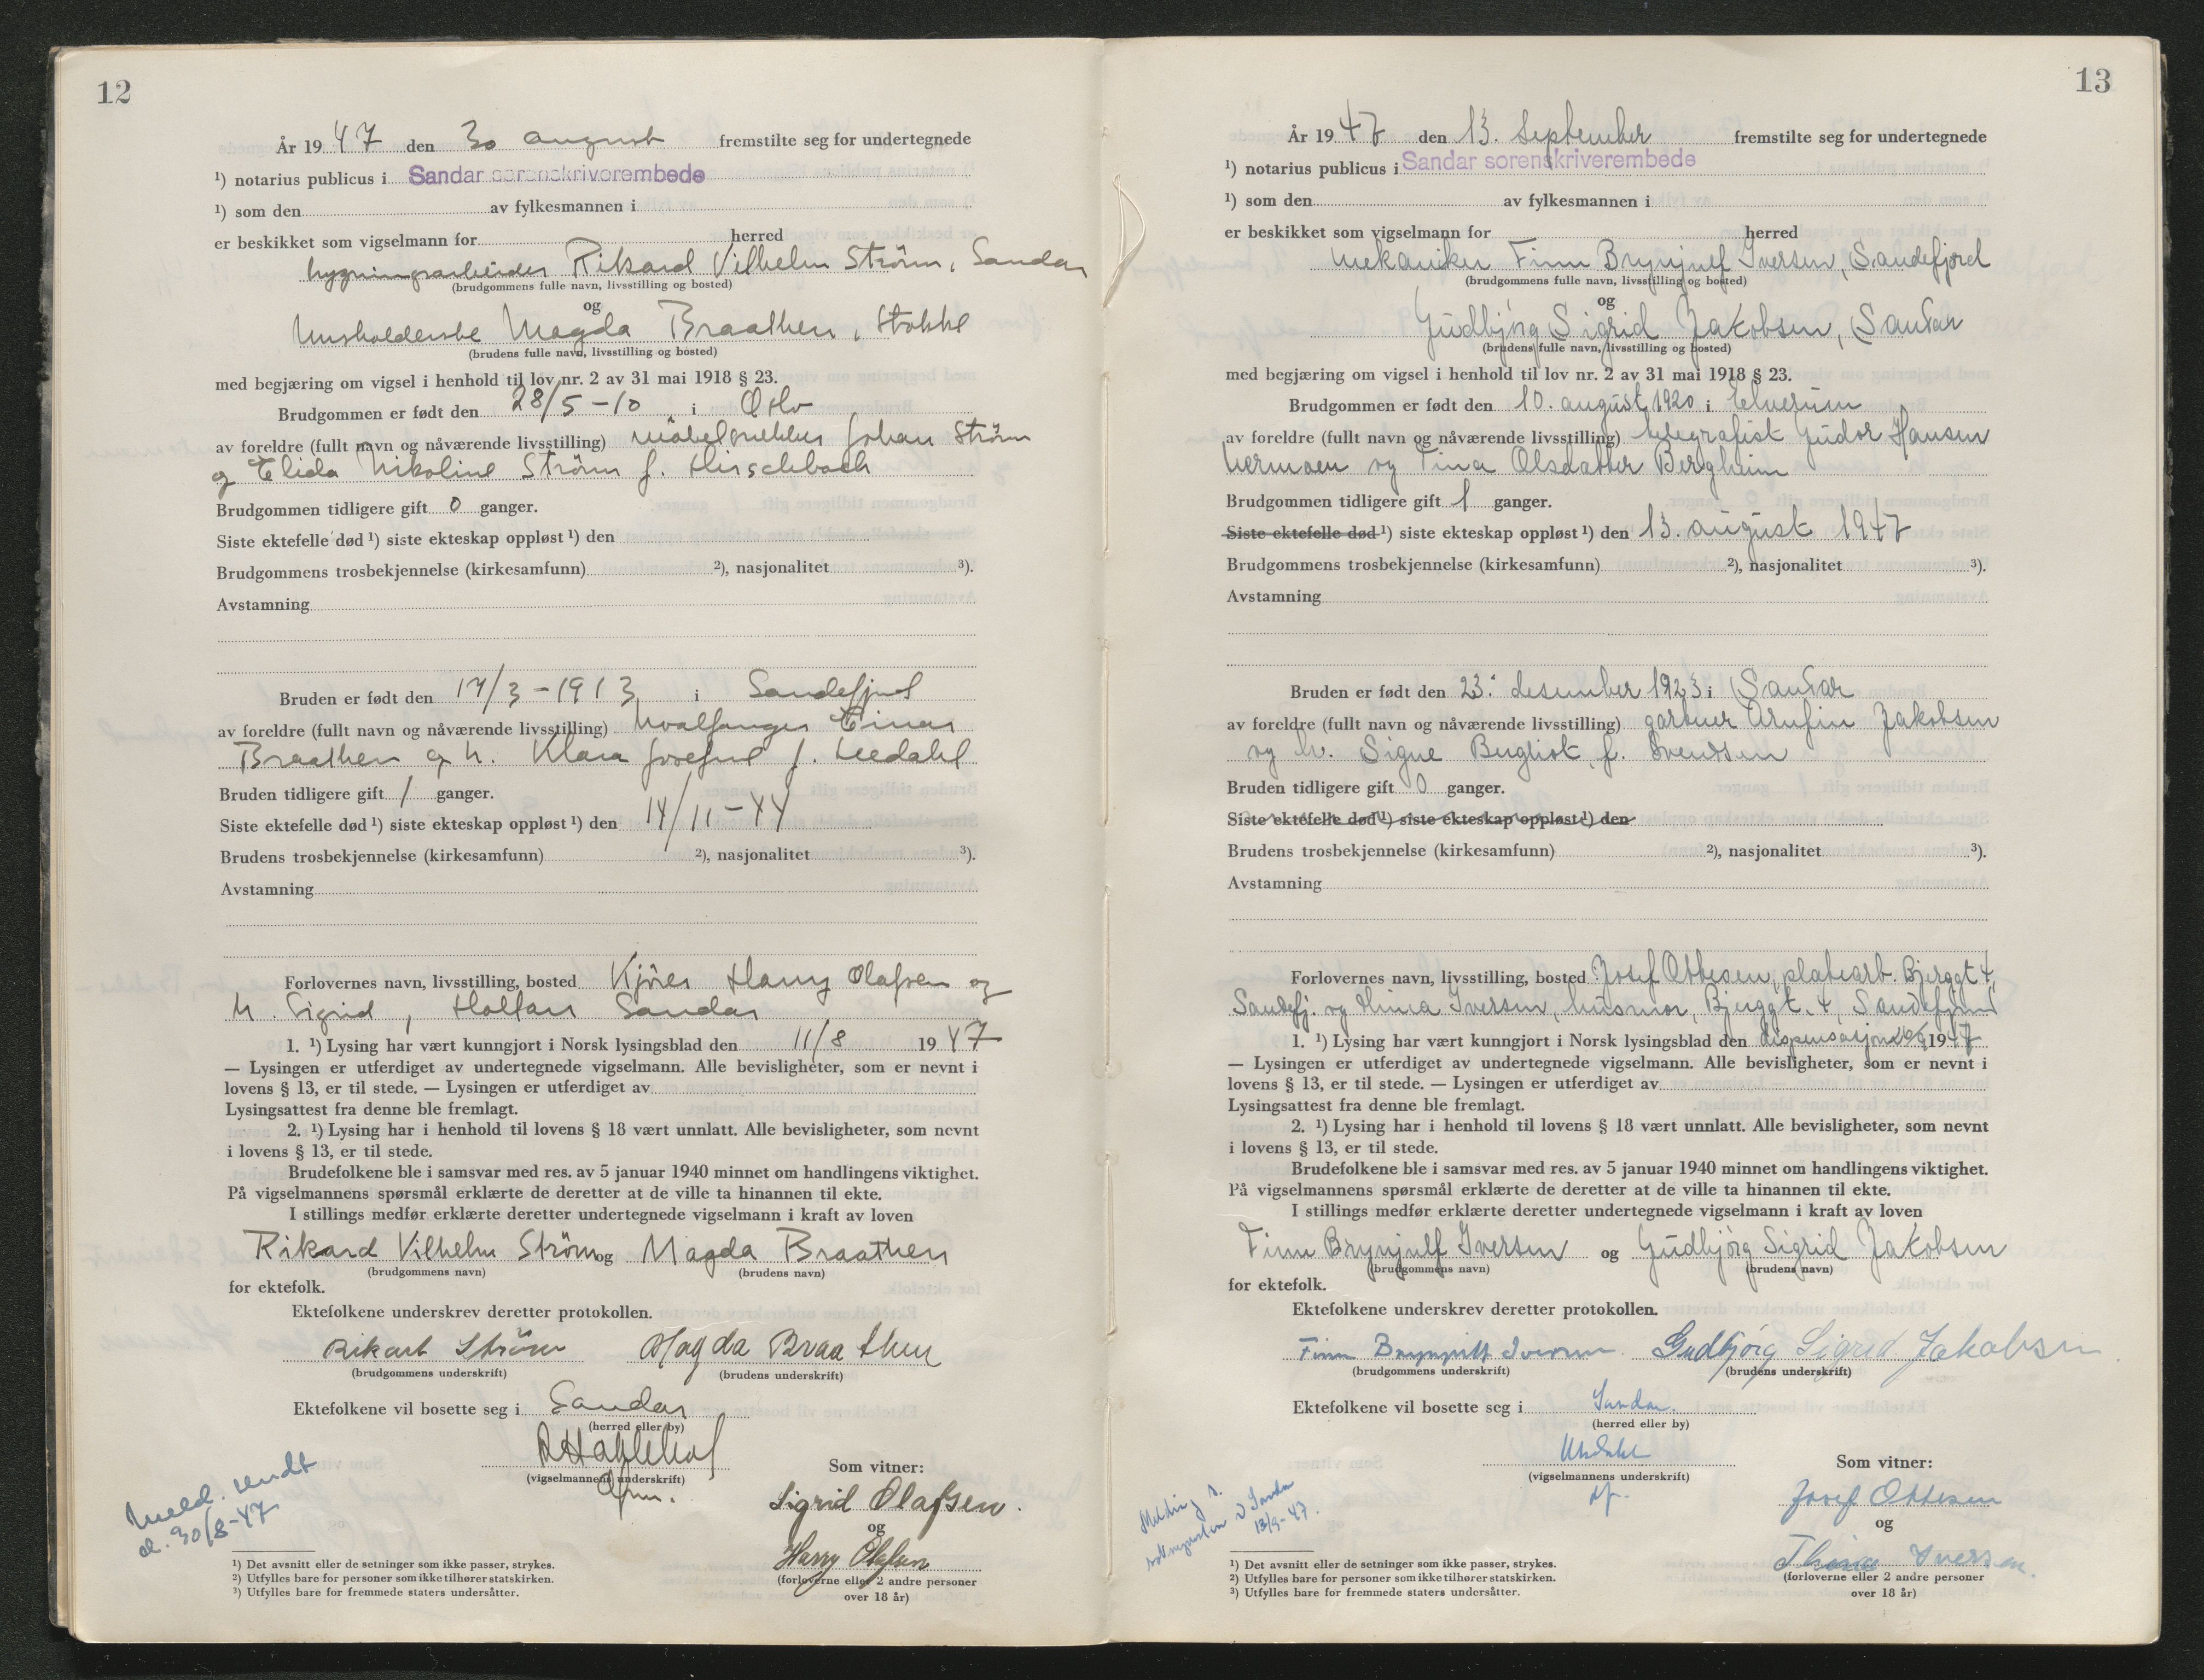 12
År 19 47 den 30 august fremstilte seg for undertegnede
¹) notarius publicus i Sandar sorenskriverembede
¹) som den av fylkesmannen i
er beskikket som vigselmann for herred
bygningsarbeider Rikard Vilhelm Ström, Sandar
(brudgommens fulle navn, livsstilling og bosted)
og
Husholderske Magda Braathen, Stokke
(brudens fulle navn, livsstilling og bosted)
med begjæring om vigsel i henhold til lov nr. 2 av 31 mai 1918 § 23.
Brudgommen er født den 28/5-10 i Oslo
av foreldre (fullt navn og nåværende livsstilling) möbelsnekker Johan Ström
og Elida Nikoline Ström f. Hirschbach
Brudgommen tidligere gift 0 ganger.
Siste ektefelle død ¹) siste ekteskap oppløst ¹) den
Brudgommens trosbekjennelse (kirkesamfunn) ²), nasjonalitet ³).
Avstamning
Bruden er født den 17/3-1913 i Sandefjord
av foreldre (fullt navn og nåværende livsstilling) hvalfanger Einar
Braathen og h. Klara Josefine f. Leedahl
Bruden tidligere gift 1 ganger.
Siste ektefelle død ¹) siste ekteskap oppløst ¹) den 14/11-44
Brudens trosbekjennelse (kirkesamfunn) ²), nasjonalitet ³).
Avstamning
Forlovernes navn, livsstilling, bosted Kjörer Harry Olafsen og
h. Sigrid, Haltan Sandar
1. ¹) Lysing har vært kunngjort i Norsk lysingsblad den 11/8 19 47
— Lysingen er utferdiget av undertegnede vigselmann. Alle bevisligheter, som er nevnt i
lovens § 13, er til stede. — Lysingen er utferdiget av
Lysingsattest fra denne ble fremlagt.
2. ¹) Lysing har i henhold til lovens § 18 vært unnlatt. Alle bevisligheter, som nevnt
i lovens § 13, er til stede.
Brudefolkene ble i samsvar med res. av 5 januar 1940 minnet om handlingens viktighet.
På vigselmannens spørsmål erklærte de deretter at de ville ta hinannen til ekte.
I stillings medfør erklærte deretter undertegnede vigselmann i kraft av loven
Rikard Vilhelm Ström og Magda Braathen
(brudgommens navn) (brudens navn)
for ektefolk.
Ektefolkene underskrev deretter protokollen.
Rikart Ström Magda Braathen
(brudgommens underskrift) (brudens underskrift)
Ektefolkene vil bosette seg i Sandar
(herred eller by)
(vigselmannens underskrift)
Som vitner:
Sigrid Olafsen.
og
Harry Olafsen
(forloverne eller 2 andre personer
over 18 år)
Meld. sendt
d. 30/8-47
¹) Det avsnitt eller de setninger som ikke passer, strykes.
²) Utfylles bare for personer som ikke tilhører statskirken.
³) Utfylles bare for fremmede staters undersåtter.
13
År 19 47 den 13. September fremstilte seg for undertegnede
¹) notarius publicus i Sandar sorenskriverembede
¹) som den av fylkesmannen i
er beskikket som vigselmann for herred
mekaniker Finn Brynjulf Iversen, Sandefjord
(brudgommens fulle navn, livsstilling og bosted)
og
Gudbjörg Sigrid Jakobsen, Sandar
(brudens fulle navn, livsstilling og bosted)
med begjæring om vigsel i henhold til lov nr. 2 av 31 mai 1918 § 23.
Brudgommen er født den 10. august 1920 i Elverum
av foreldre (fullt navn og nåværende livsstilling) telegrafist Gudor Hansen
Nermoen og Tina Olsdatter Bergheim
Brudgommen tidligere gift 1 ganger.
Siste ektefelle død ¹) siste ekteskap oppløst ¹) den 13. august 1947
Brudgommens trosbekjennelse (kirkesamfunn) ²), nasjonalitet ³).
Avstamning
Bruden er født den 23. desember 1923 i Sandar
av foreldre (fullt navn og nåværende livsstilling) gartner Arnfin Jakobsen
og h. Signe Bergliot f. Svendsen
Bruden tidligere gift 0 ganger.
Siste ektefelle død ¹) siste ekteskap oppløst ¹) den
Brudens trosbekjennelse (kirkesamfunn) ²), nasjonalitet ³).
Avstamning
Forlovernes navn, livsstilling, bosted Josef Ottesen, platearb. Bjerggt. 4,
Sandefj. og Thina Iversen, husmor, Bjerggt. 4, Sandefjord
1. ¹) Lysing har vært kunngjort i Norsk lysingsblad den dispensasjon 1947
— Lysingen er utferdiget av undertegnede vigselmann. Alle bevisligheter, som er nevnt i
lovens § 13, er til stede. — Lysingen er utferdiget av
Lysingsattest fra denne ble fremlagt.
2. ¹) Lysing har i henhold til lovens § 18 vært unnlatt. Alle bevisligheter, som nevnt
i lovens § 13, er til stede.
Brudefolkene ble i samsvar med res. av 5 januar 1940 minnet om handlingens viktighet.
På vigselmannens spørsmål erklærte de deretter at de ville ta hinannen til ekte.
I stillings medfør erklærte deretter undertegnede vigselmann i kraft av loven
Finn Brynjulf Iversen og Gudbjörg Sigrid Jakobsen
(brudgommens navn) (brudens navn)
for ektefolk.
Ektefolkene underskrev deretter protokollen.
Finn Brynjulf Iversen Gudbjörg Sigrid Jakobsen
(brudgommens underskrift) (brudens underskrift)
Ektefolkene vil bosette seg i Sandar.
(herred eller by)
(vigselmannens underskrift)
Som vitner:
Josef Ottesen
og
Thina Iversen.
(forloverne eller 2 andre personer
over 18 år)
Melding s.
i Sandar
13/9-47.
¹) Det avsnitt eller de setninger som ikke passer, strykes.
²) Utfylles bare for personer som ikke tilhører statskirken.
³) Utfylles bare for fremmede staters undersåtter.